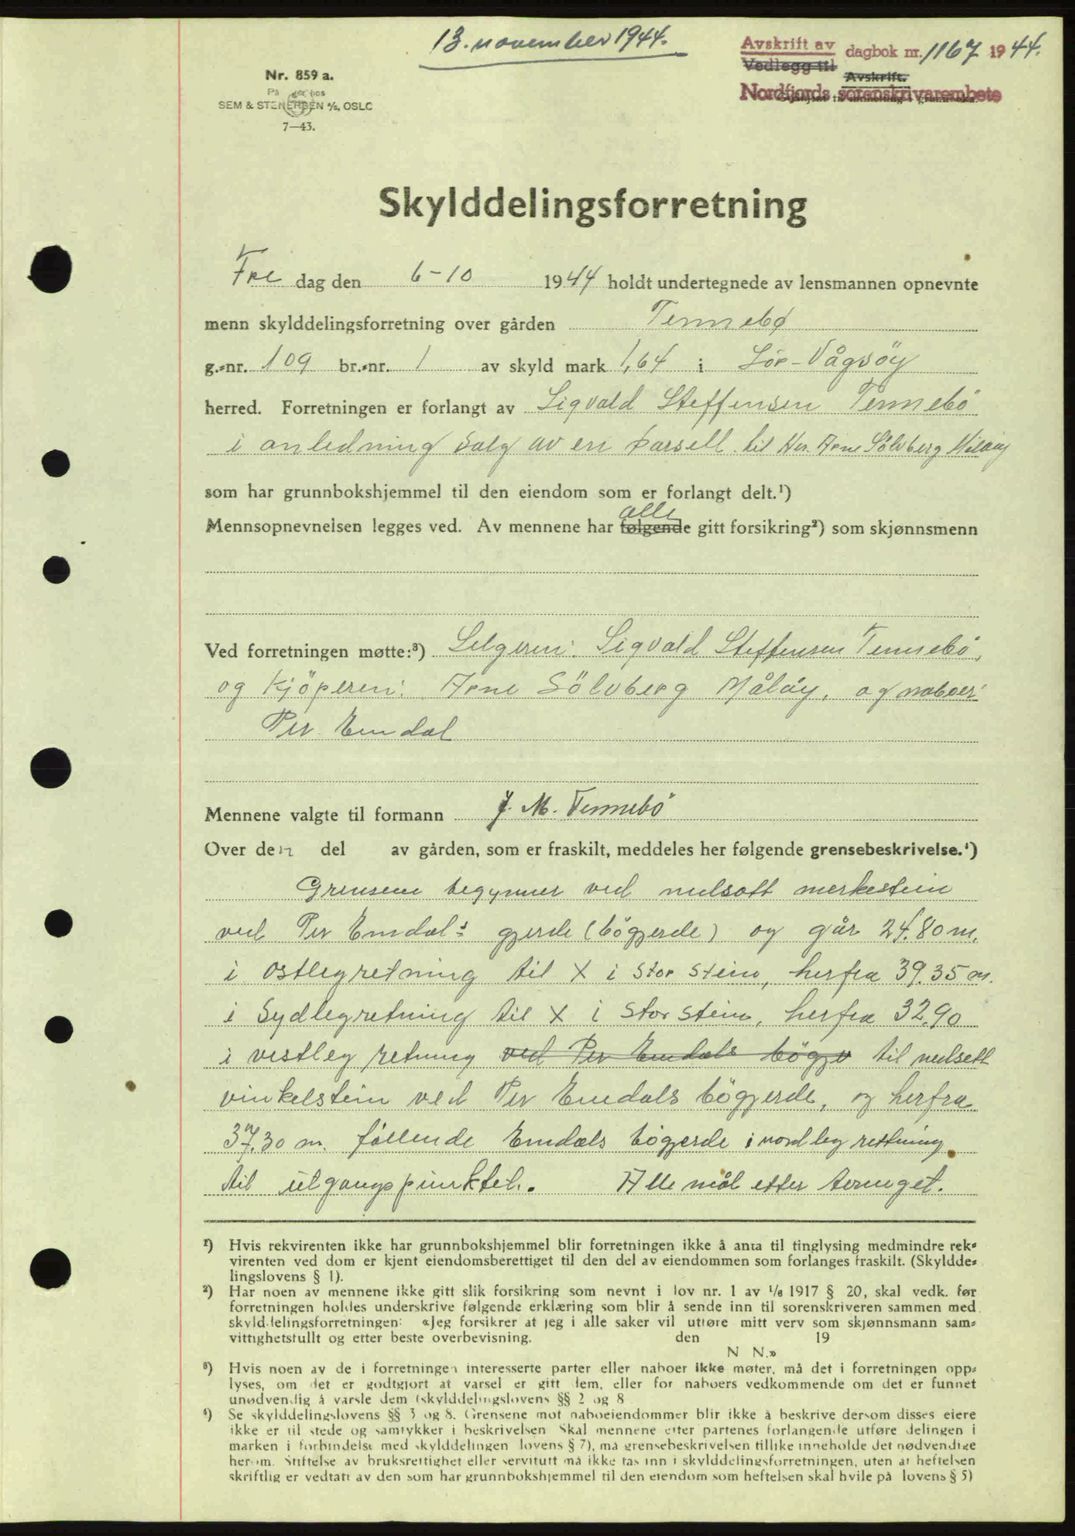 13. november 1944.
Avskrift av dagbok nr. 1167 1944.
Vedlegg til
Avskrift.
Nordfjords sorenskrivarembete
Nr. 859 a.
På hos
SEM & STENERSEN A/S, OSLO
7—43.
Skylddelingsforretning
Fre dag den 6-10 1944 holdt undertegnede av lensmannen opnevnte
menn skylddelingsforretning over gården Tennebø
g.-nr. 109 br.-nr. 1 av skyld mark 1,64 i Sør-Vågsöy
herred. Forretningen er forlangt av Sigvald Steffensen Tennebö
i anledning salg av en parsell til Hr. Arne Sölvberg Måløy
som har grunnbokshjemmel til den eiendom som er forlangt delt.¹)
alle
Mennsopnevnelsen legges ved. Av mennene har følgende gitt forsikring²) som skjønnsmenn
Ved forretningen møtte:³) Selgeren: Sigvald Steffensen Tennebö,
og kjöperen: Arne Sölvberg Målöy, og naboer:
Per Emdal
Mennene valgte til formann J. M. Tennebö
Over den del av gården, som er fraskilt, meddeles her følgende grensebeskrivelse.⁴)
Grensene begynner ved nedsatt merkestein
ved Per Emdals gjerde (bögjerde) og går 24.80 m.
i ostlegretning til X i stor stein, herfra 39.35 m.
i Sydlegretning til X i stor stein, herfra 32.90
i vestleg retning ved Per Emdals bögje til nedsett
vinkelstein ved Per Emdals bögjerde, og herfra
37.30 m. föllende Emdals bögjerde i nordleg rettning
til utgangspunktet. Alle mål etter terrenget.
¹) Hvis rekvirenten ikke har grunnbokshjemmel blir forretningen ikke å anta til tinglysing medmindre rek-
virenten ved dom er kjent eiendomsberettiget til den del av eiendommen som forlanges fraskilt. (Skyldde-
lingslovens § 1).
²) Har noen av mennene ikke gitt slik forsikring som nevnt i lov nr. 1 av 1/6 1917 § 20, skal vedk. før
forretningen holdes underskrive følgende erklæring som blir å sende inn til sorenskriveren sammen med
skylddelingsforretningen: «Jeg forsikrer at jeg i alle saker vil utføre mitt verv som skjønnsmann sam-
vittighetsfullt og etter beste overbevisning. den 19
N N.»
³) Hvis noen av de i forretningen interesserte parter eller naboer ikke møter, må det i forretningen opp-
lyses, om det er godtgjort at varsel er gitt dem, eller for naboers vedkommende om det er funnet
unødvendig å varsle dem (skylddelingslovens §§ 2 og 8
⁴) Se skylddelingslovens §§ 3 og 8. Grensene mot naboeiendommer blir ikke å beskrive dersom disses eiere
ikke er til stede og samtykker i beskrivelsen Skal mennene etter partenes forlangende utføre delingen i
marken i forbindelse med skylddelingen lovens § 7), må grensebeskrivelsen tillike inneholde det nødvendige
herom. Stiftelse av bruksrettighet eller servitutt må ikke tas inn i skylddelingsforretningen, uten at heftelsen
skriftlig er vedtatt av den som har grunnbokshjemmel til den eiendom som heftelsen skal hvile på lovens § 5)